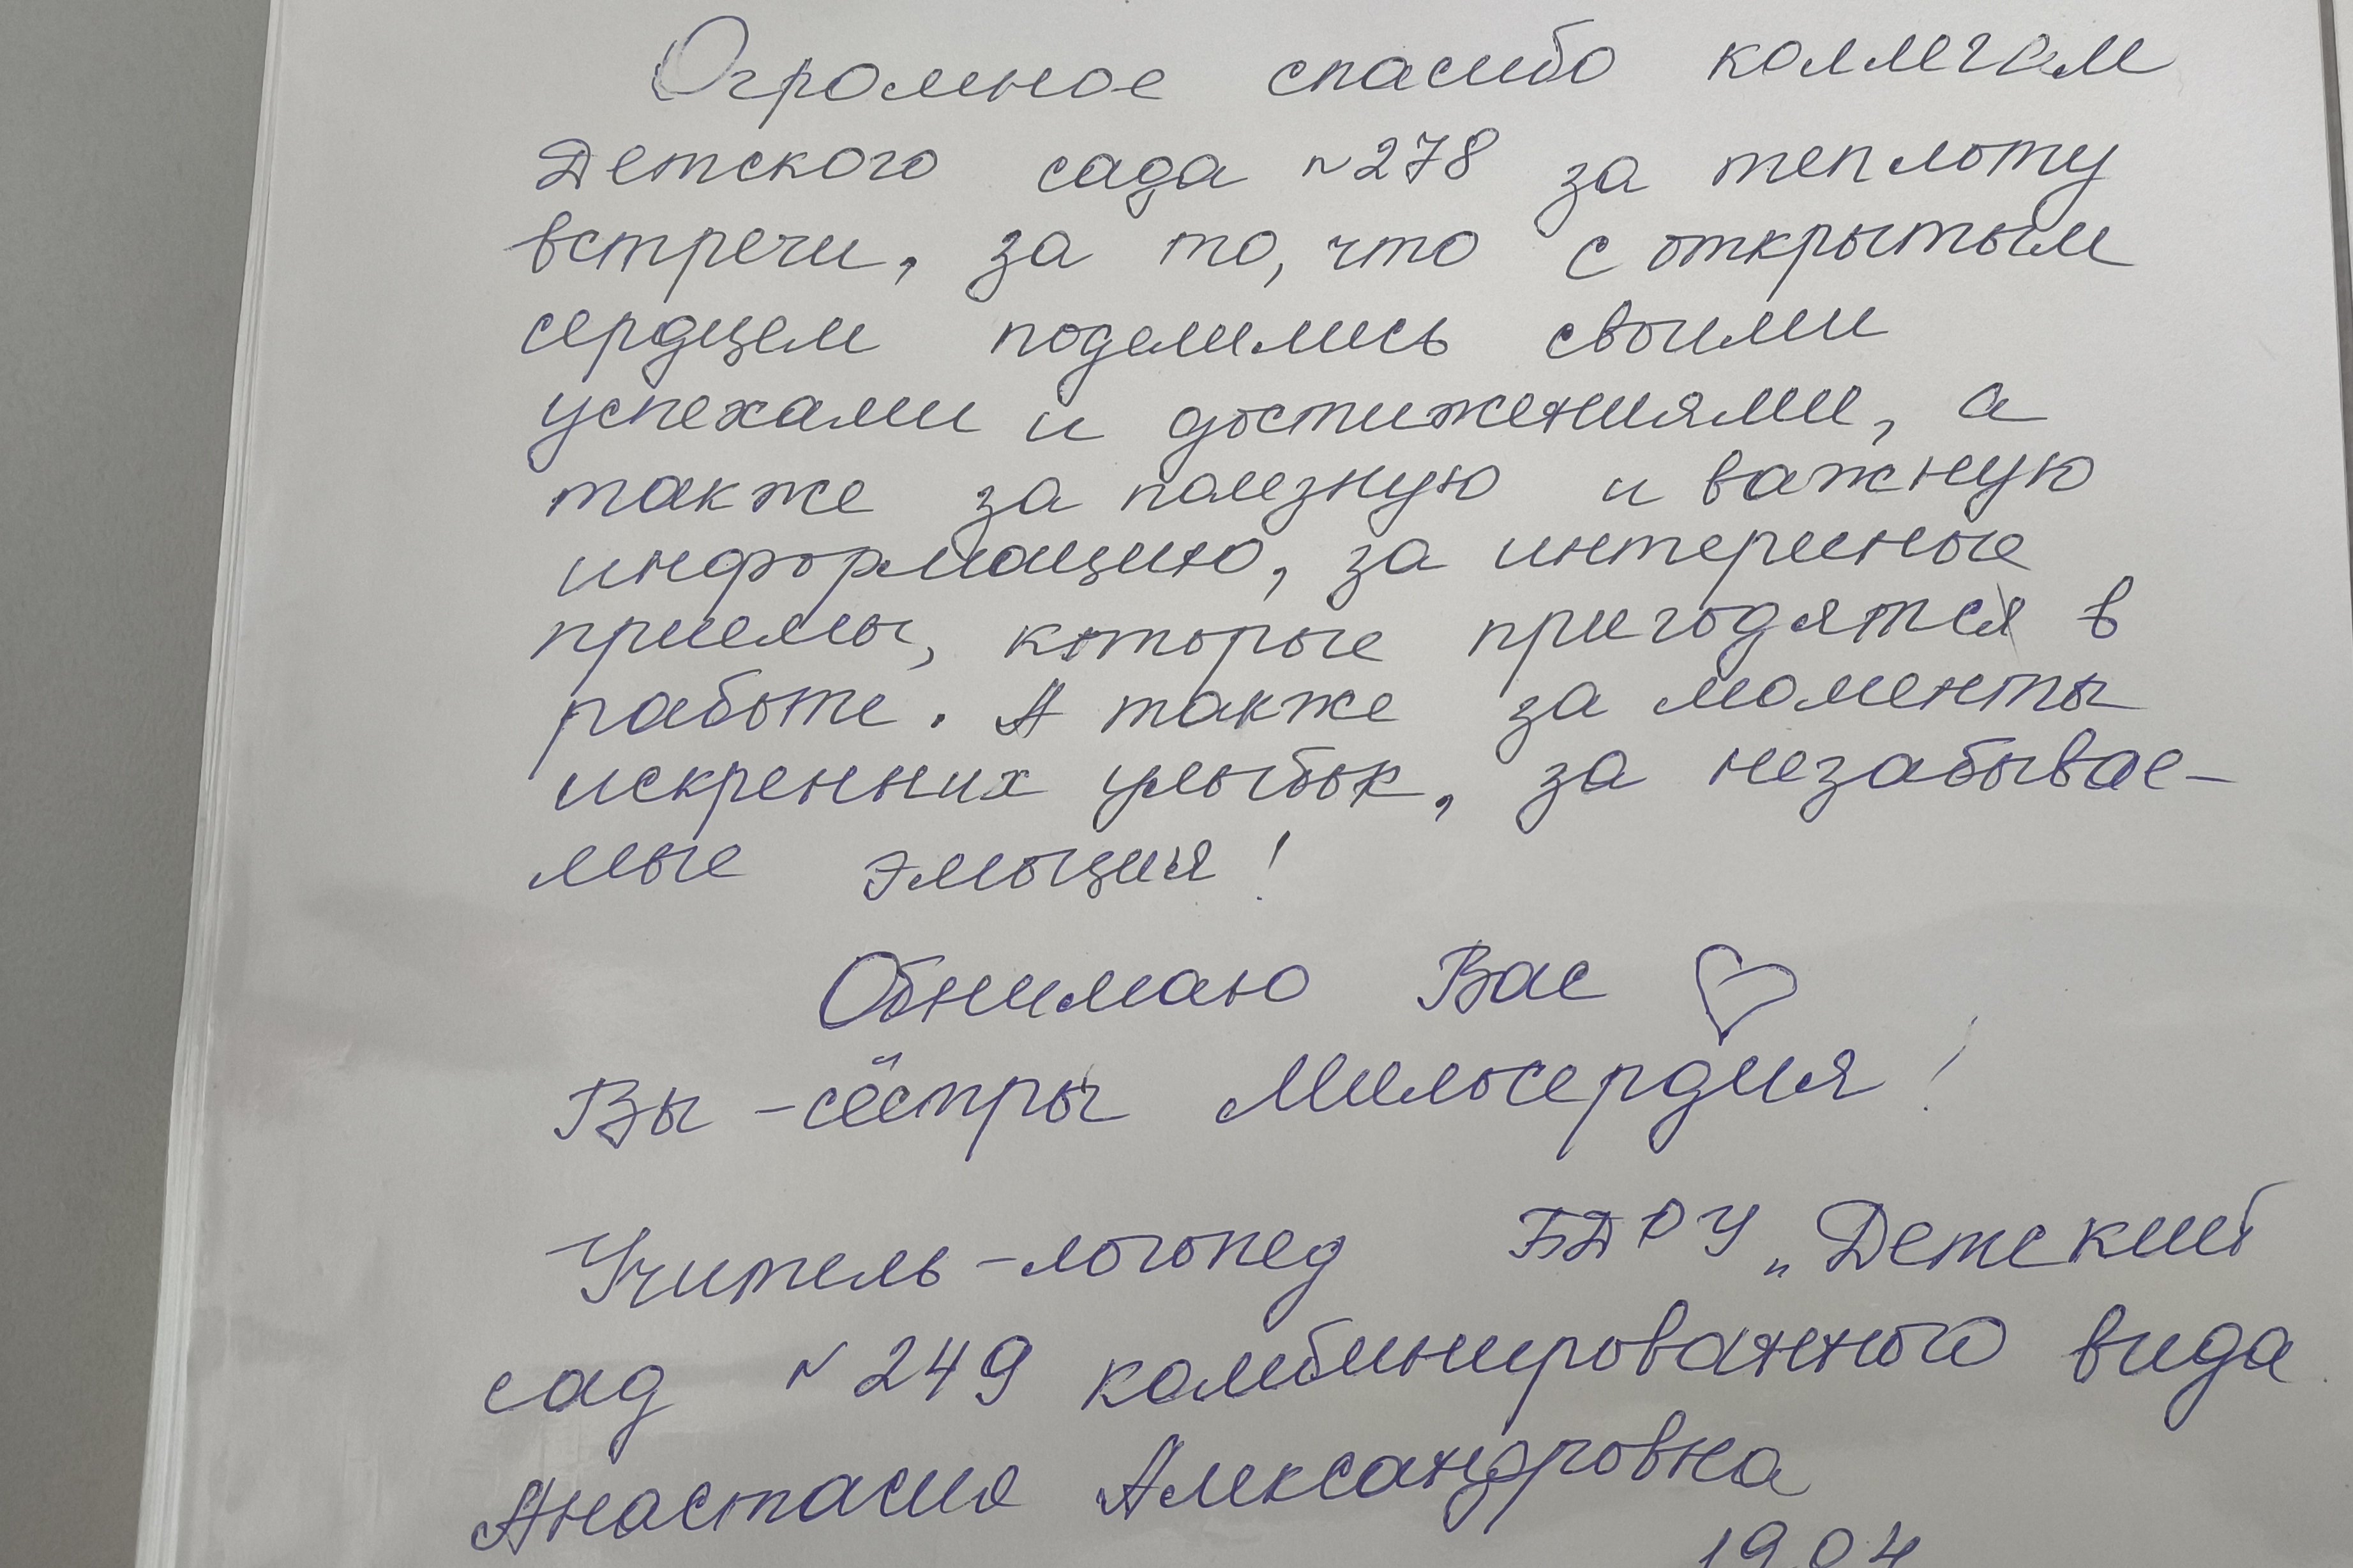 Огромное спасибо коллегам
Детского сада №278 за теплоту
встречи, за то, что с открытым
сердцем поделились своими
успехами и достижениями, а
также за полезную и важную
информацию, за интересные
приемы, которые пригодятся в
работе. А также за моменты
искренних улыбок, за незабывае-
мые эмоция!
Обнимаю Вас ♡
Вы - сёстры Милосердия!
Учитель-логопед БДОУ „Детский
сад №249 комбинированного вида
Анастасия Александровна
19.04